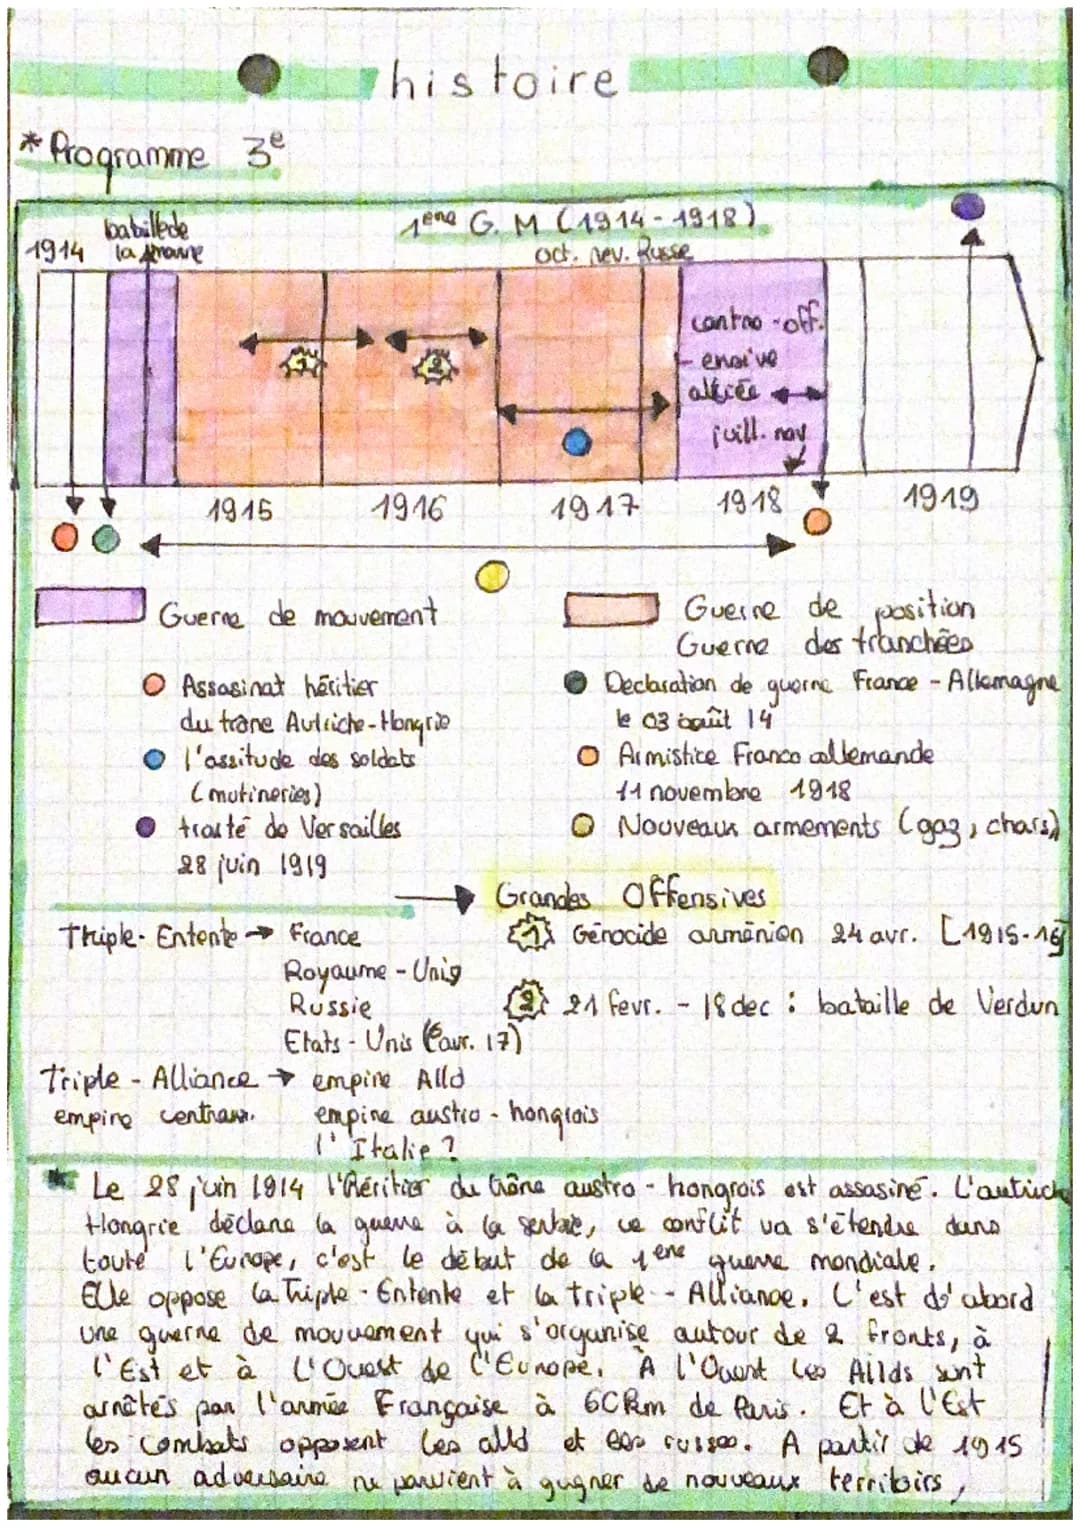 histoire
* Programme 3e
1914
bataille de
la Marne
1ère G. M (1914-1918)
oct. rev. Russe
contre-off.
ensive
alliée
juill. nov
1
2
1915
1916
1917
1918
1919
Guerre de mouvement
Guerre de position
Guerre des tranchées
Assasinat héritier
du trône Autriche-Hongrie
Declaration de guerre France - Allemagne
le 03 août 14
l'assitude des soldats
(mutineries)
Armistice Franco allemande
11 novembre 1918
traité de Versailles
28 juin 1919
Nouveaux armements (gaz, chars)
Grandes Offensives
1 Génocide arménien 24 avr. [1915-16]
2 21 fevr. - 18 dec : bataille de Verdun
Triple-Entente → France
Royaume-Unis
Russie
Etats-Unis (6avr. 17)
Triple-Alliance → empire Alld
empire centraux. empire austro-hongrois
l'Italie ?
* Le 28 juin 1914 l'héritier du trône austro-hongrois est assasiné. L'autriche
Hongrie déclare la guerre à la serbie, ce conflit va s'étendre dans
toute l'Europe, c'est le début de la 1ère guerre mondiale.
Elle oppose la Triple-Entente et la triple-Alliance. C'est d'abord
une guerre de mouvement qui s'organise autour de 2 fronts, à
l'Est et à l'Ouest de l'Europe. À l'Ouest les Allds sont
arrêtés par l'armée Française à 60km de Paris. Et à l'Est
les combats opposent les alld et les russes. A partir de 1915
aucun adversaire ne parvient à gagner de nouveaux territoirs,